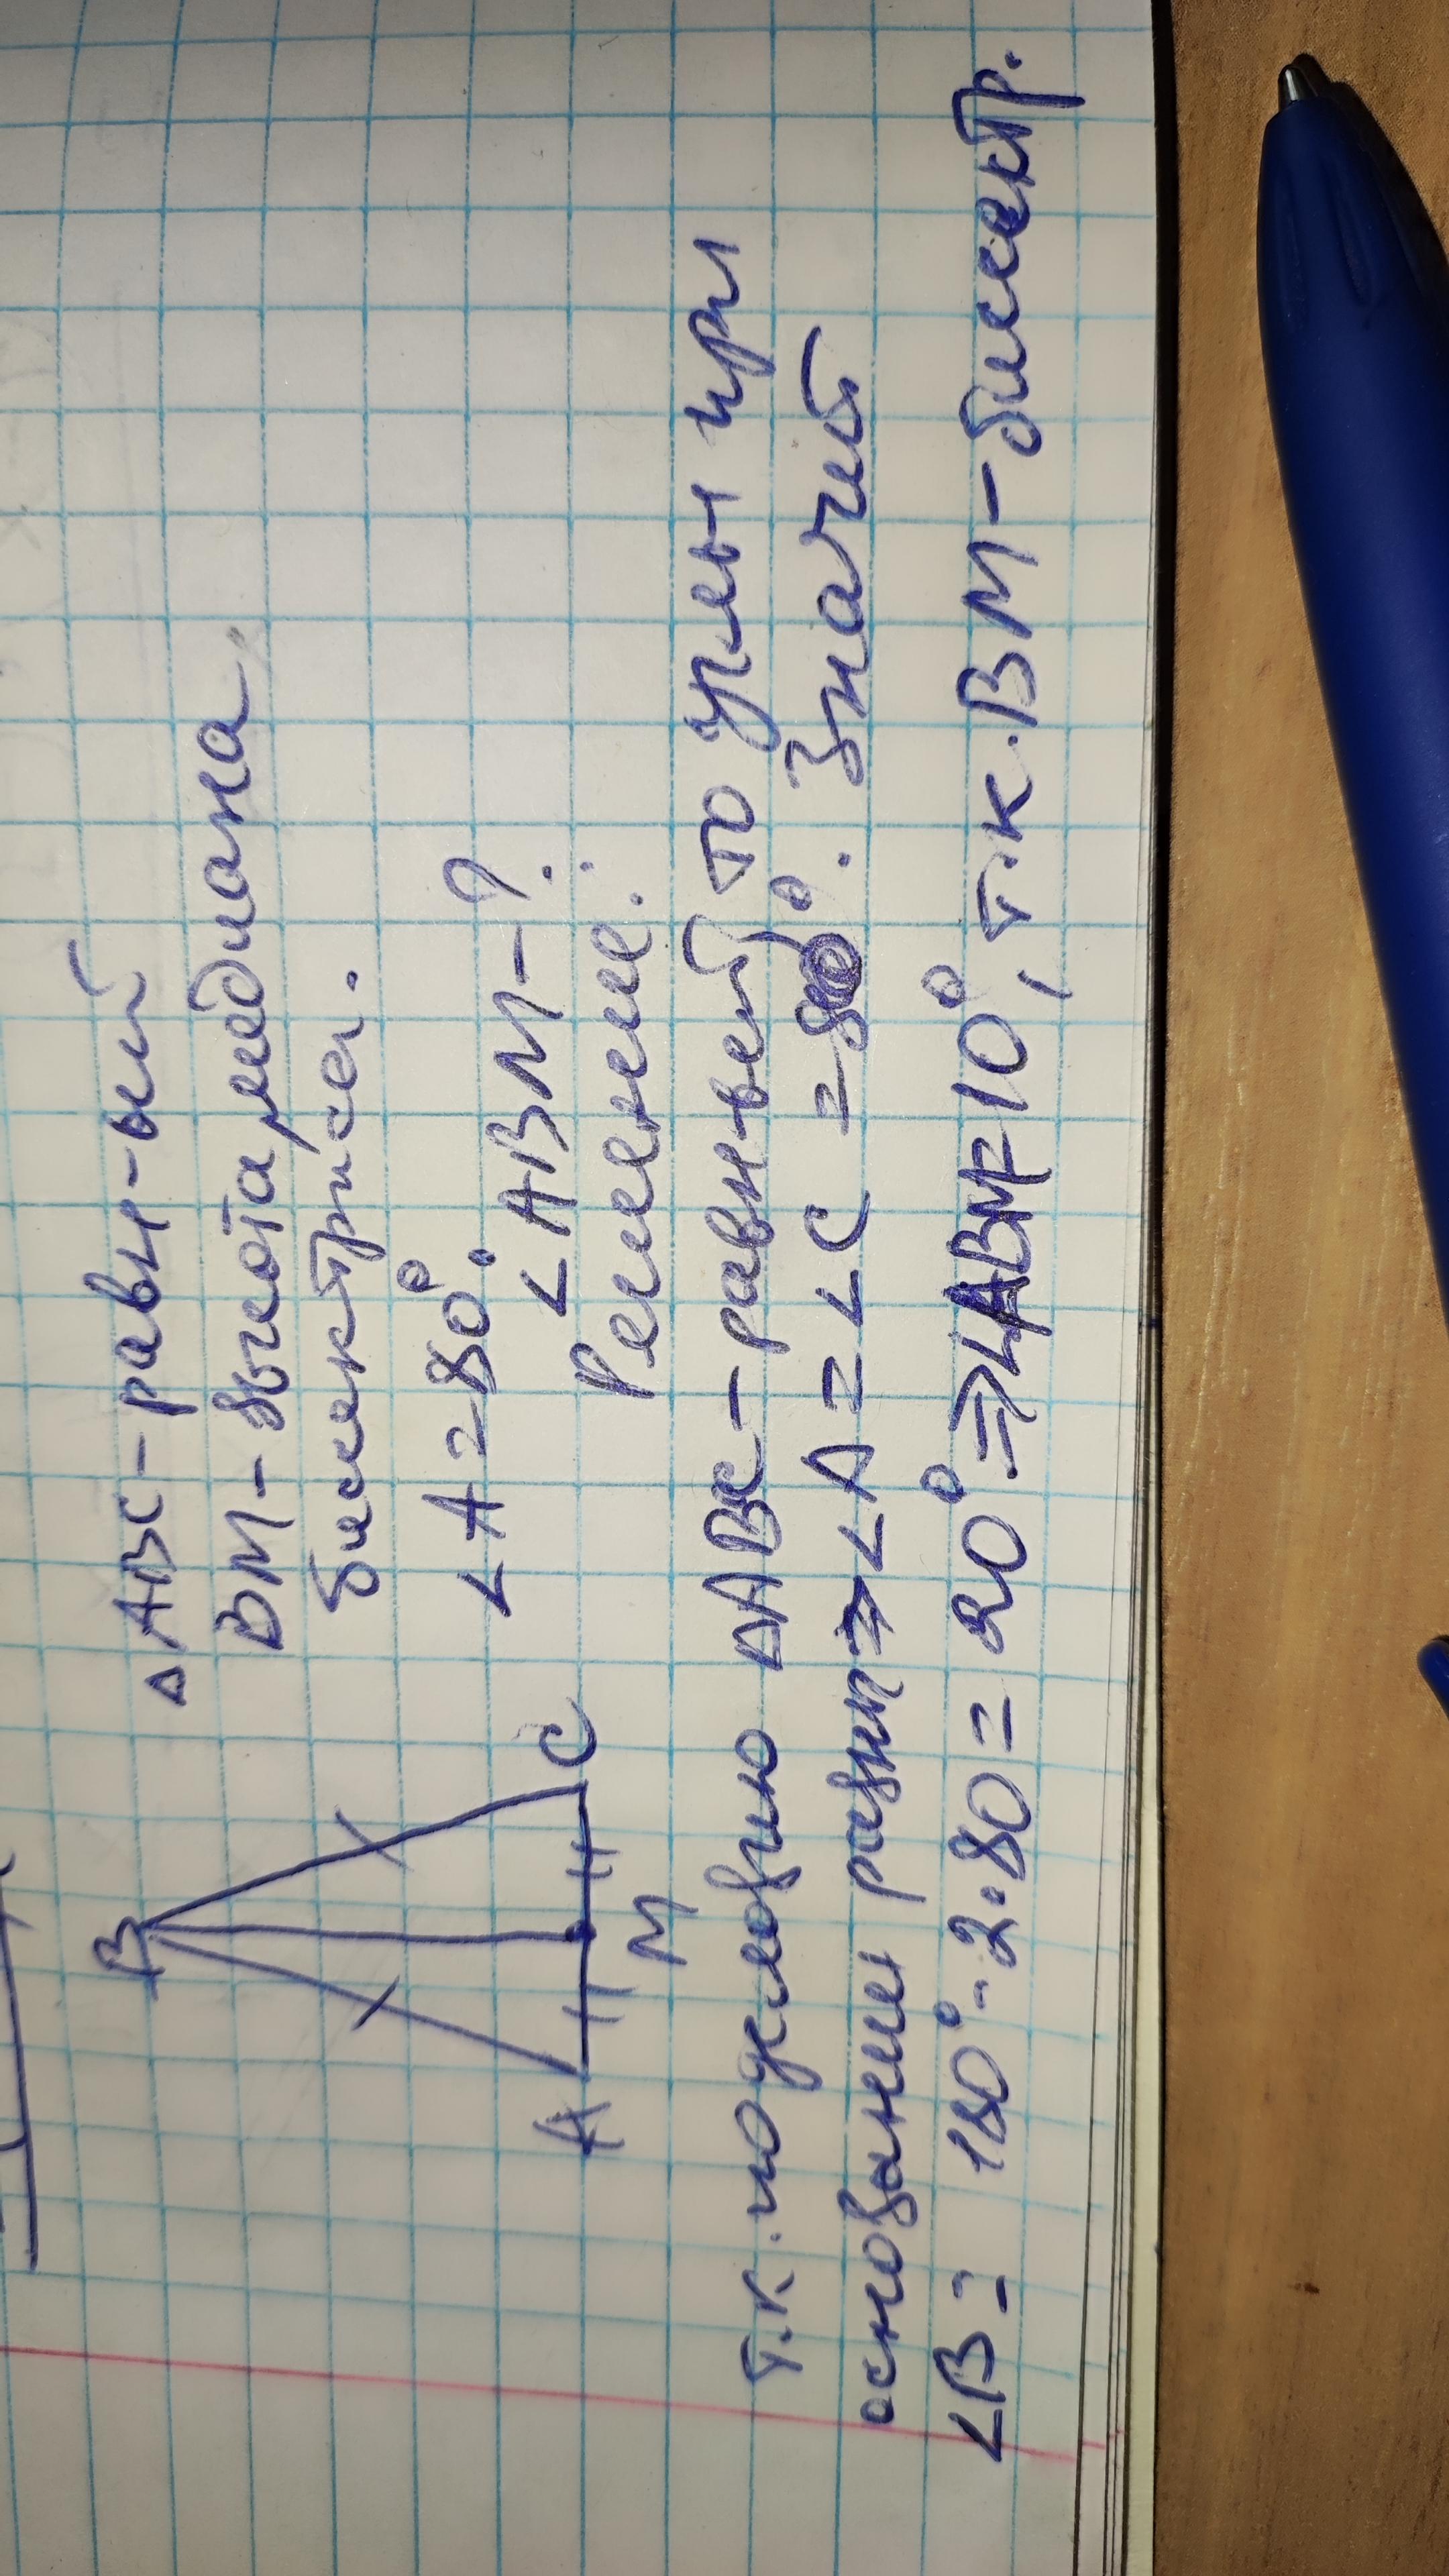 B
A
M
C
△ABC - равн-ый
BM - высота, медиана,
биссектриса.
∠A = 80°.
∠ABM - ?
Решение:
т.к. по условию △ABC - равн-ый, то углы при
основании равны => ∠A = ∠C = 80°. Значит
∠B = 180° - 2·80 = 20° => ∠ABM = 10°, т.к. BM - биссектр.